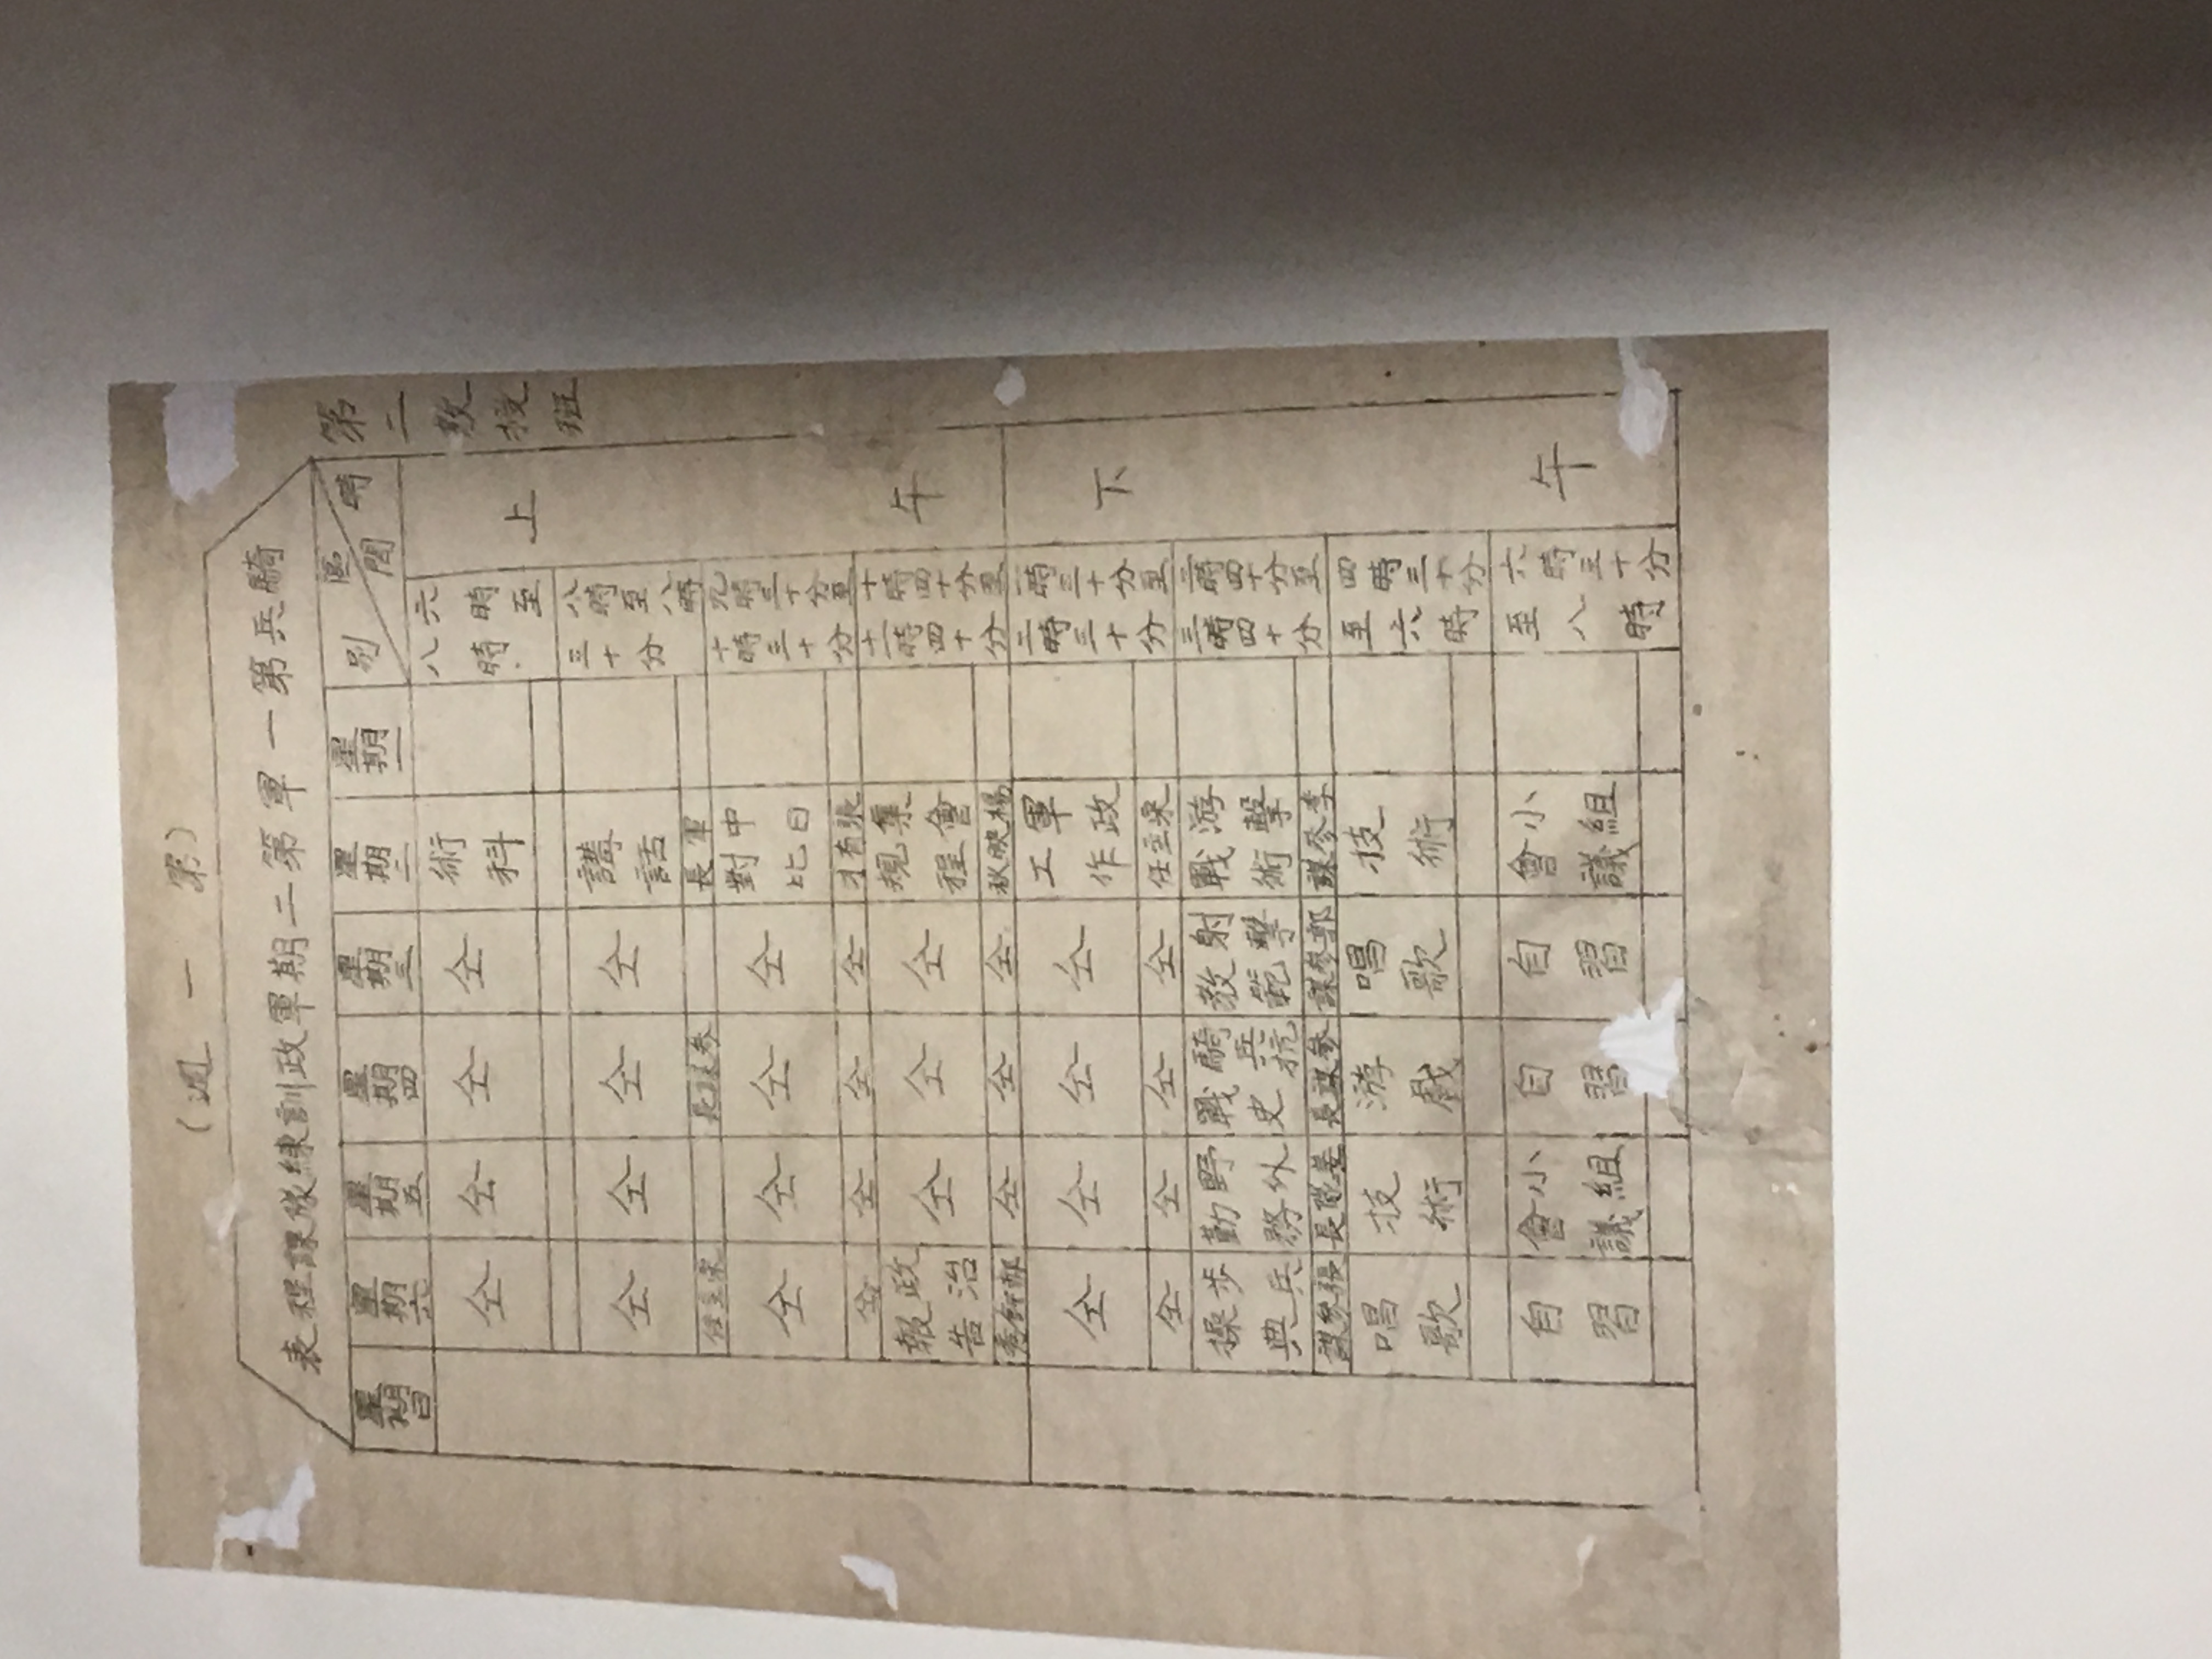 （第一週）
騎兵第一軍第二期軍政訓練隊課程表
第二教授班
時間 區別 星期一 星期二 星期三 星期四 星期五 星期六 星期日
上午
六時至八時 術科 仝 仝 仝 仝
八時至八時三十分 講話 仝 仝 仝 仝
軍長 參謀長 宋主任
九時三十分至十時三十分 中日對比 仝 仝 仝 仝
張有才 仝 仝 仝 仝
十時四十分至十一時四十分 集會規程 仝 仝 仝 政治報告
楊映秋 仝 仝 仝 郝
下午
一時三十分至二時三十分 軍政工作 仝 仝 仝 仝
宋主任 仝 仝 仝 仝
二時四十分至三時四十分 游擊戰術 射擊教範 騎兵抗戰史 野外勤務 步兵操典
李參謀 郭參謀 參謀長 姜隊長 張參謀
四時三十分至六時 技術 唱歌 游戲 技術 唱歌
六時三十分至八時 小組會議 自習 自習 小組會議 自習